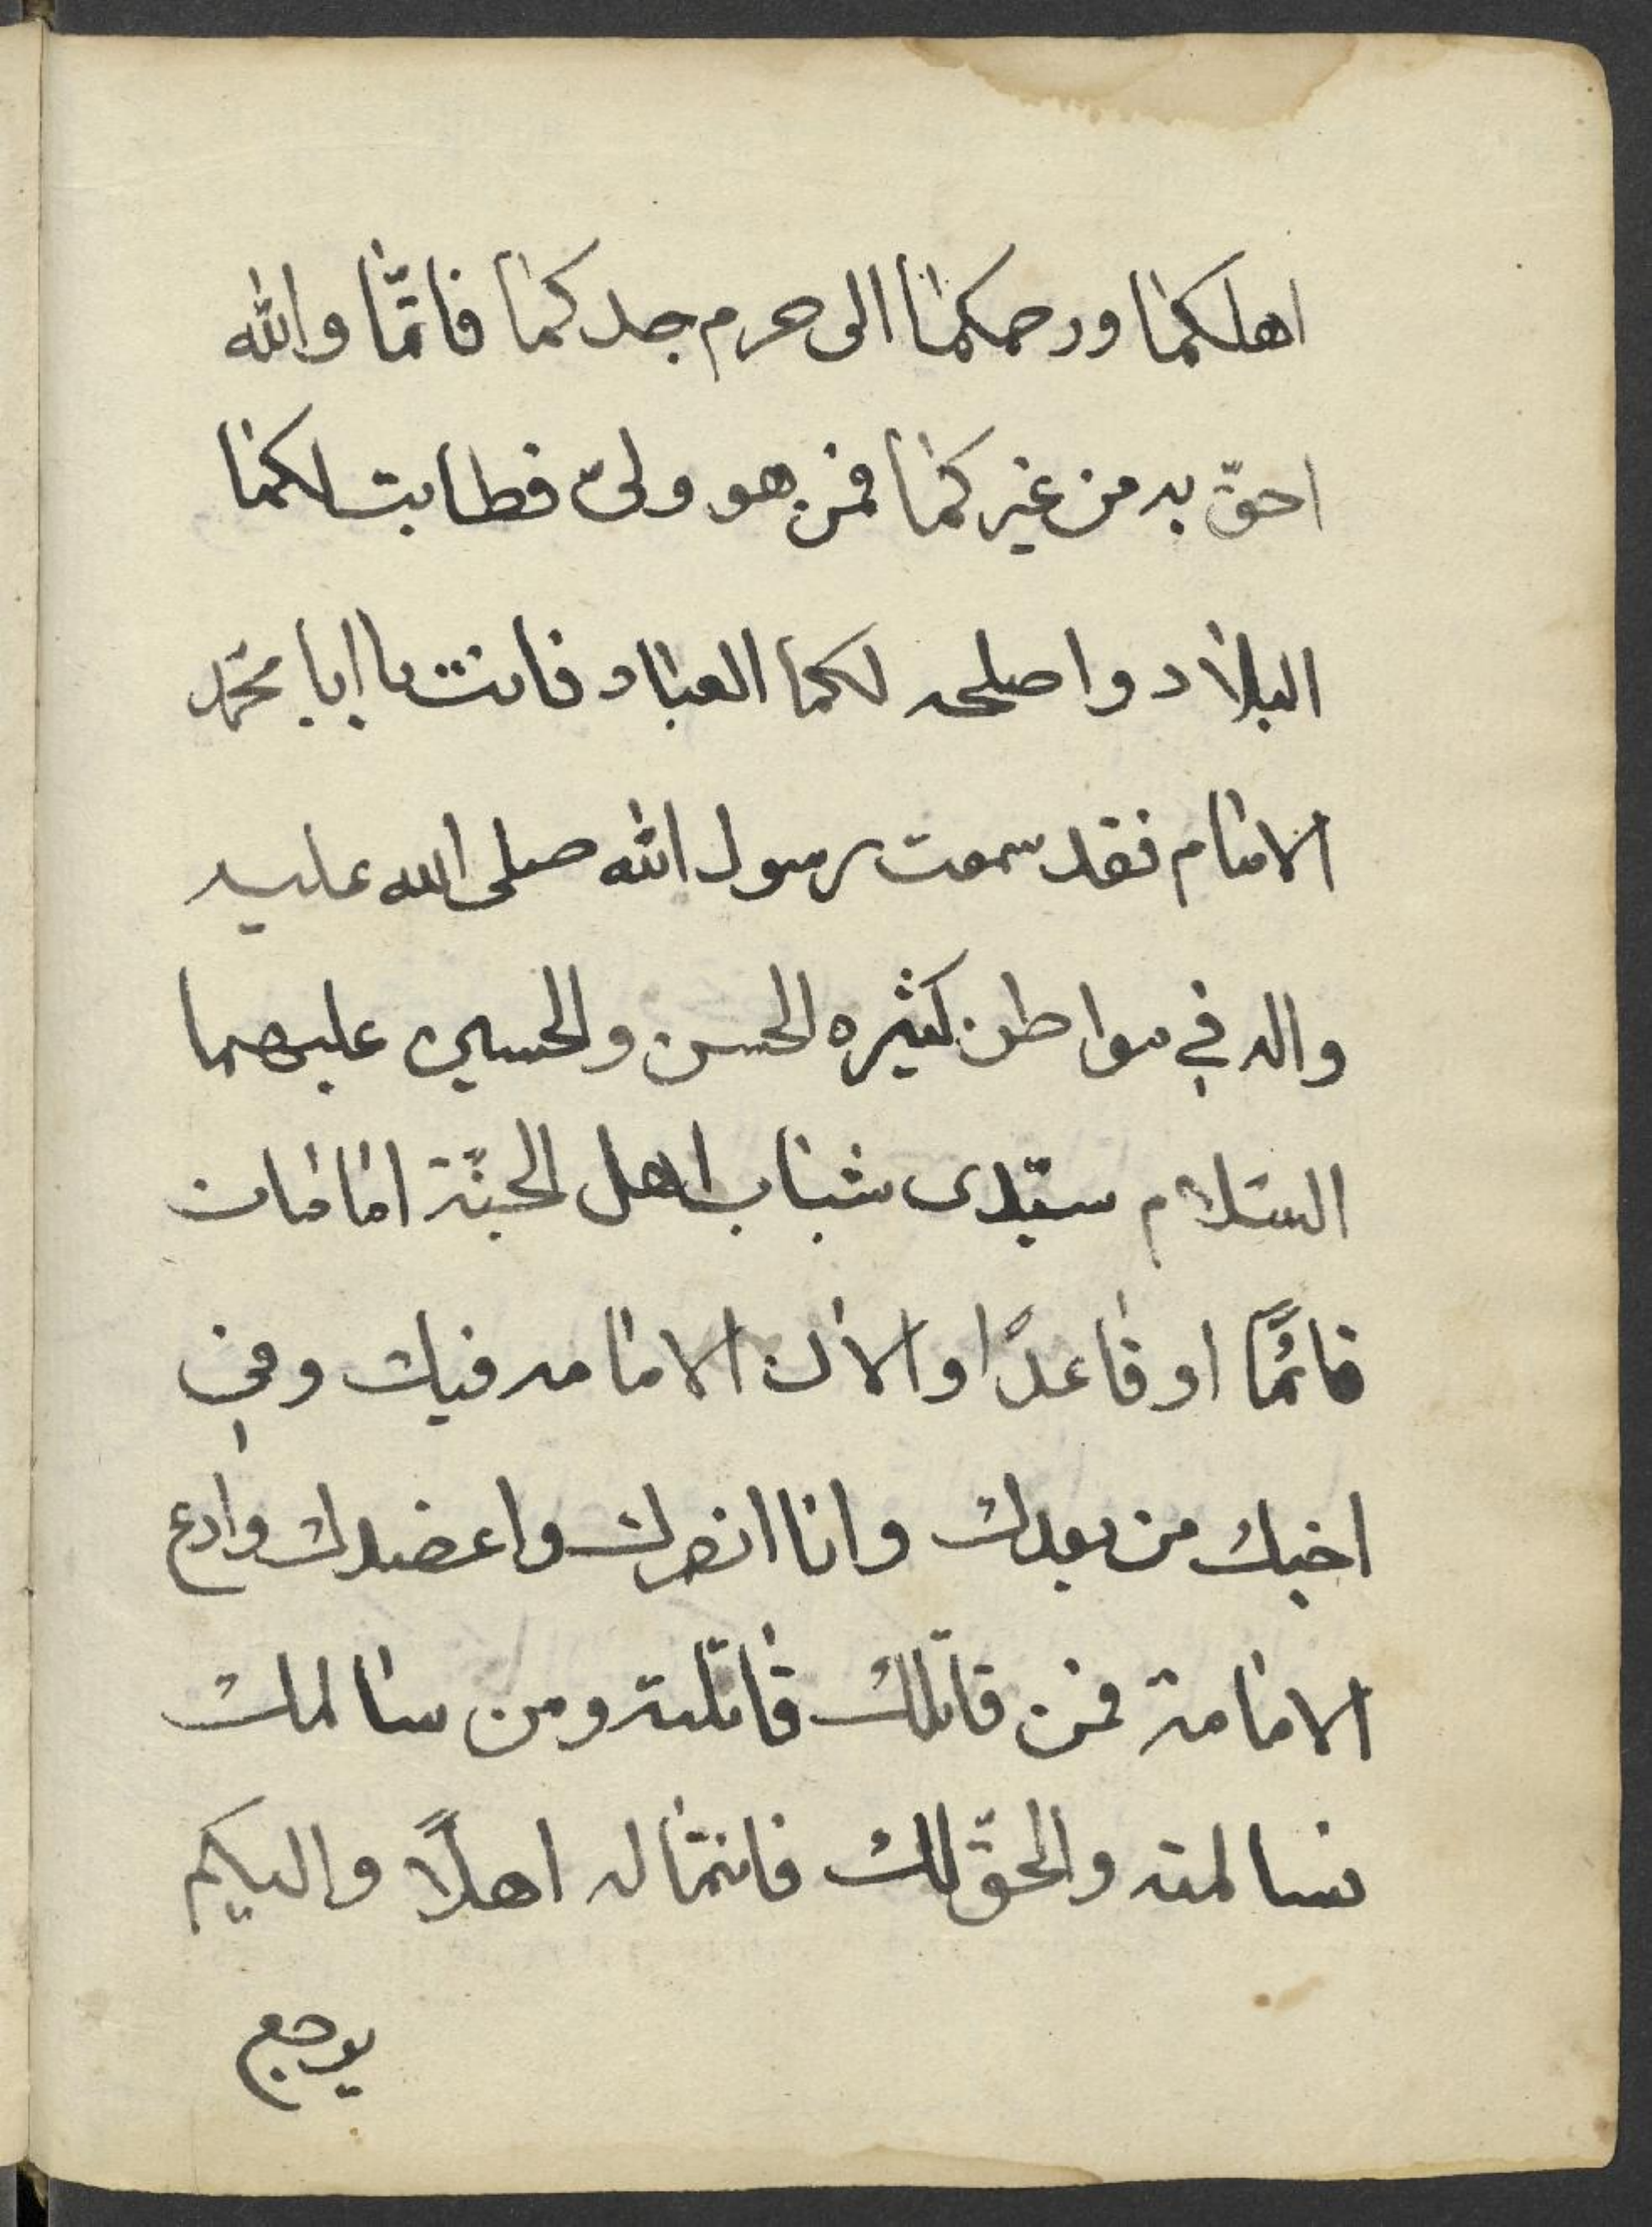 اهلكما ورحمكما الى حرم جدكما فانتما والله
احقّ به من غيركما فمن هو ولىّ فطابت لكما
البلاد واصلحه لكما العباد فانت يا ابا محمّد
الامام فقد سمعت رسول الله صلى الله عليه
واله في مواطن كثيره الحسن والحسين عليهما
السّلام سيّدى شباب اهل الجنّة امامان
قائمًا او قاعدًا والان الامامه فيك وفي
اخيك من بعدك وانا انصرك واعضدك وادع
الامامة فمن قاتلك قاتلته ومن سالمك
سالمته والحقّ لك فانتما له اهلاً واليكم
يرجع